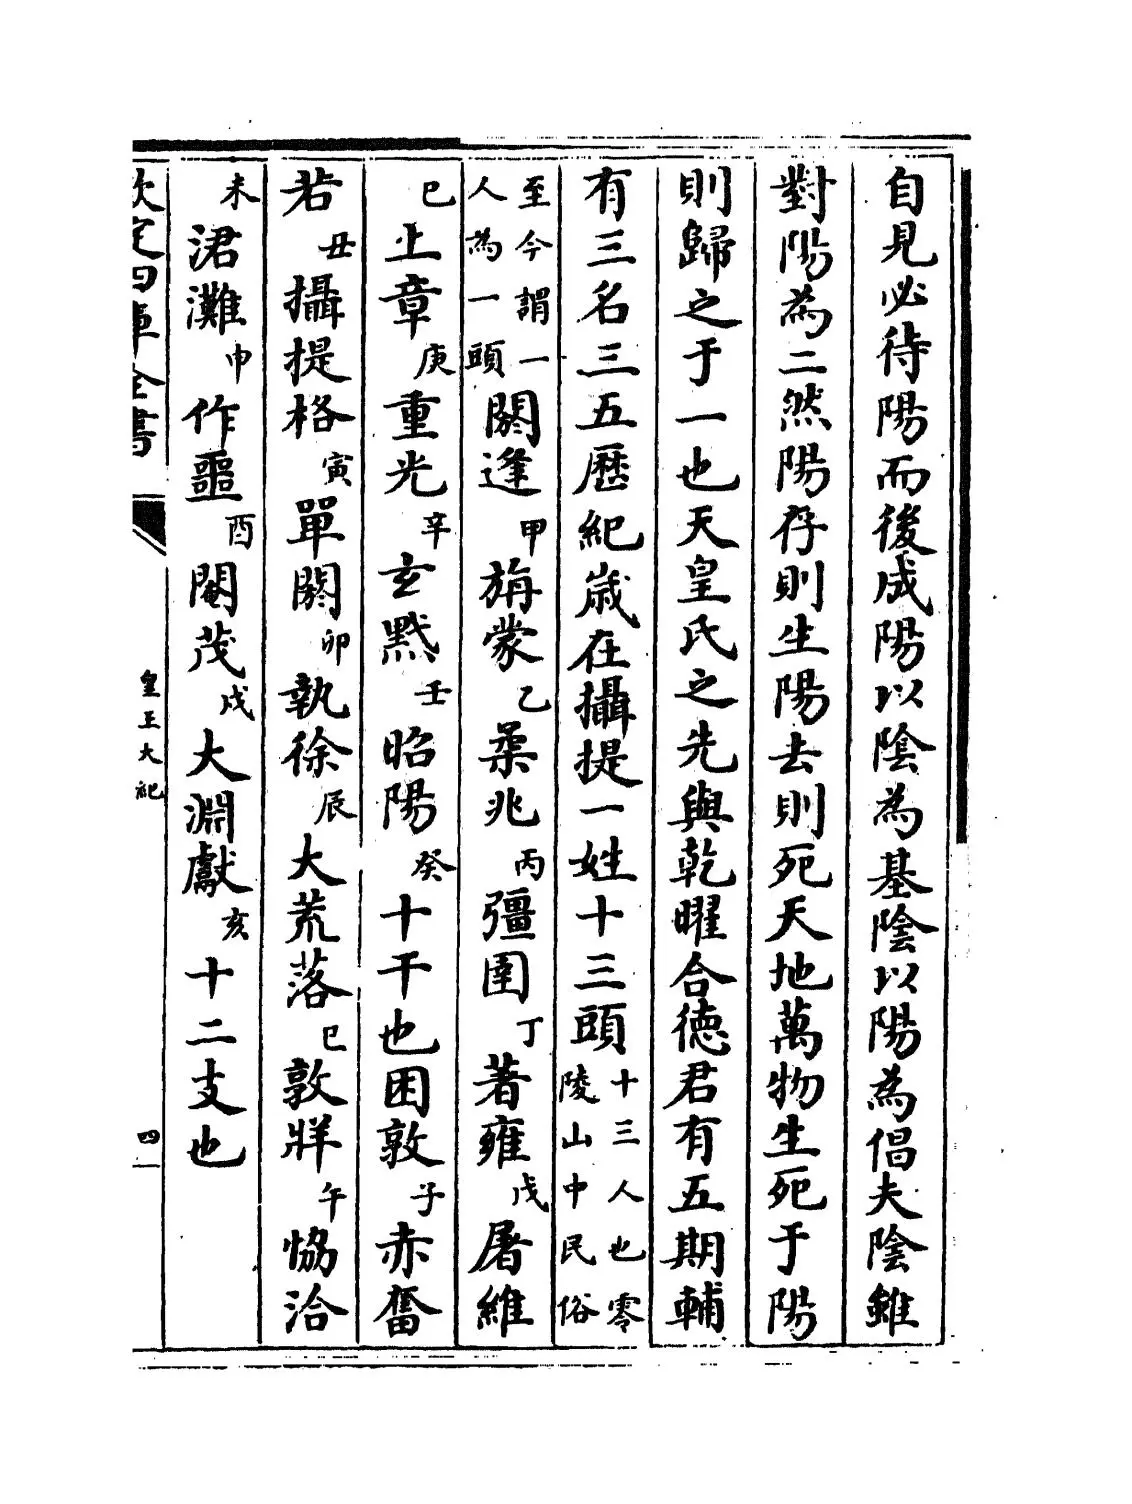 自見必待陽而後成陽以陰為基陰以陽為倡夫陰雖
對陽為二然陽存則生陽去則死天地萬物生死于陽
則歸之于一也天皇氏之先與乾曜合徳君有五期輔
有三名三五歴紀歳在攝提一姓十三頭十三人也零陵山中民俗
至今謂一人為一頭閼逢甲旃蒙乙柔兆丙彊圉丁著雍戊屠維
巳上章庚重光辛玄黙壬昭陽癸十干也困敦子赤奮
若丑攝提格寅單閼卯執徐辰大荒落巳敦牂午恊洽
未涒灘申作噩酉閹茂戌大淵獻亥十二支也
欽定四庫全書
皇王大紀
四